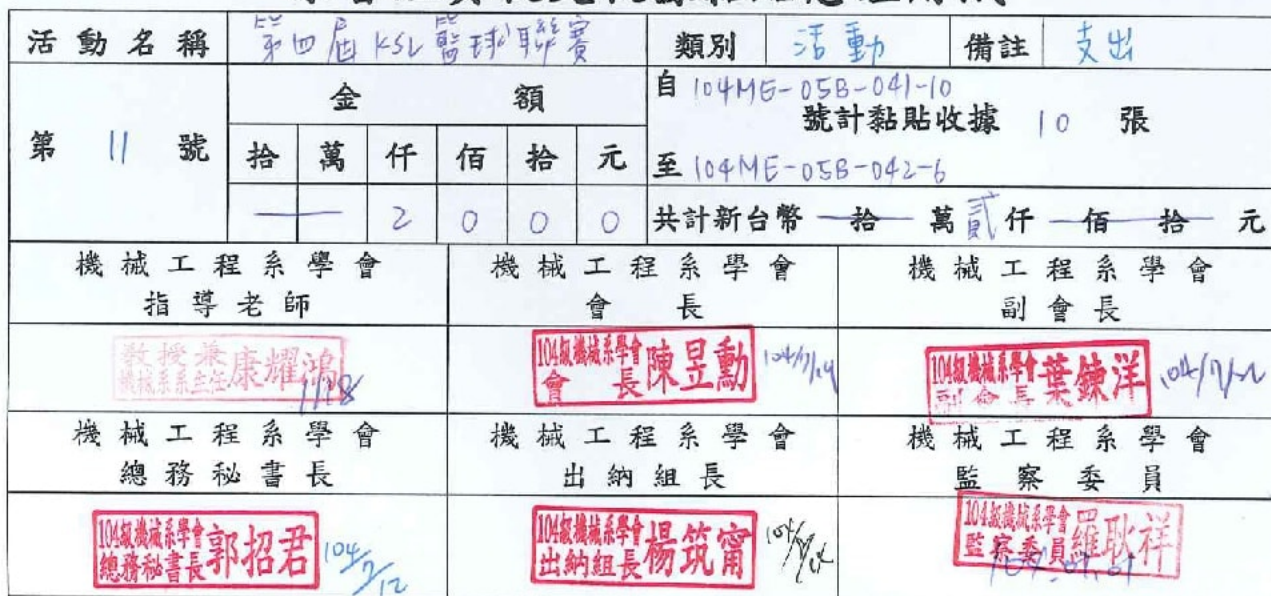 活動名稱 第四屆KSL籃球聯賽 類別 活動 備註 支出
第 11 號
金額
拾 萬 仟 佰 拾 元
2 0 0 0
自 104ME-05B-041-10
號計黏貼收據 10 張
至 104ME-05B-042-6
共計新台幣 拾 萬 貳仟 佰 拾 元
機械工程系學會
指導老師
機械工程系學會
會長
機械工程系學會
副會長
教授兼
機械系系主任
康耀鴻
1/18
104級機械系學會
會長
陳昱勳
104級機械系學會
副會長
葉鍊洋
機械工程系學會
總務秘書長
機械工程系學會
出納組長
機械工程系學會
監察委員
104級機械系學會
總務秘書長
郭招君
104級機械系學會
出納組長
楊筑甯
104級機械系學會
監察委員
羅耿祥